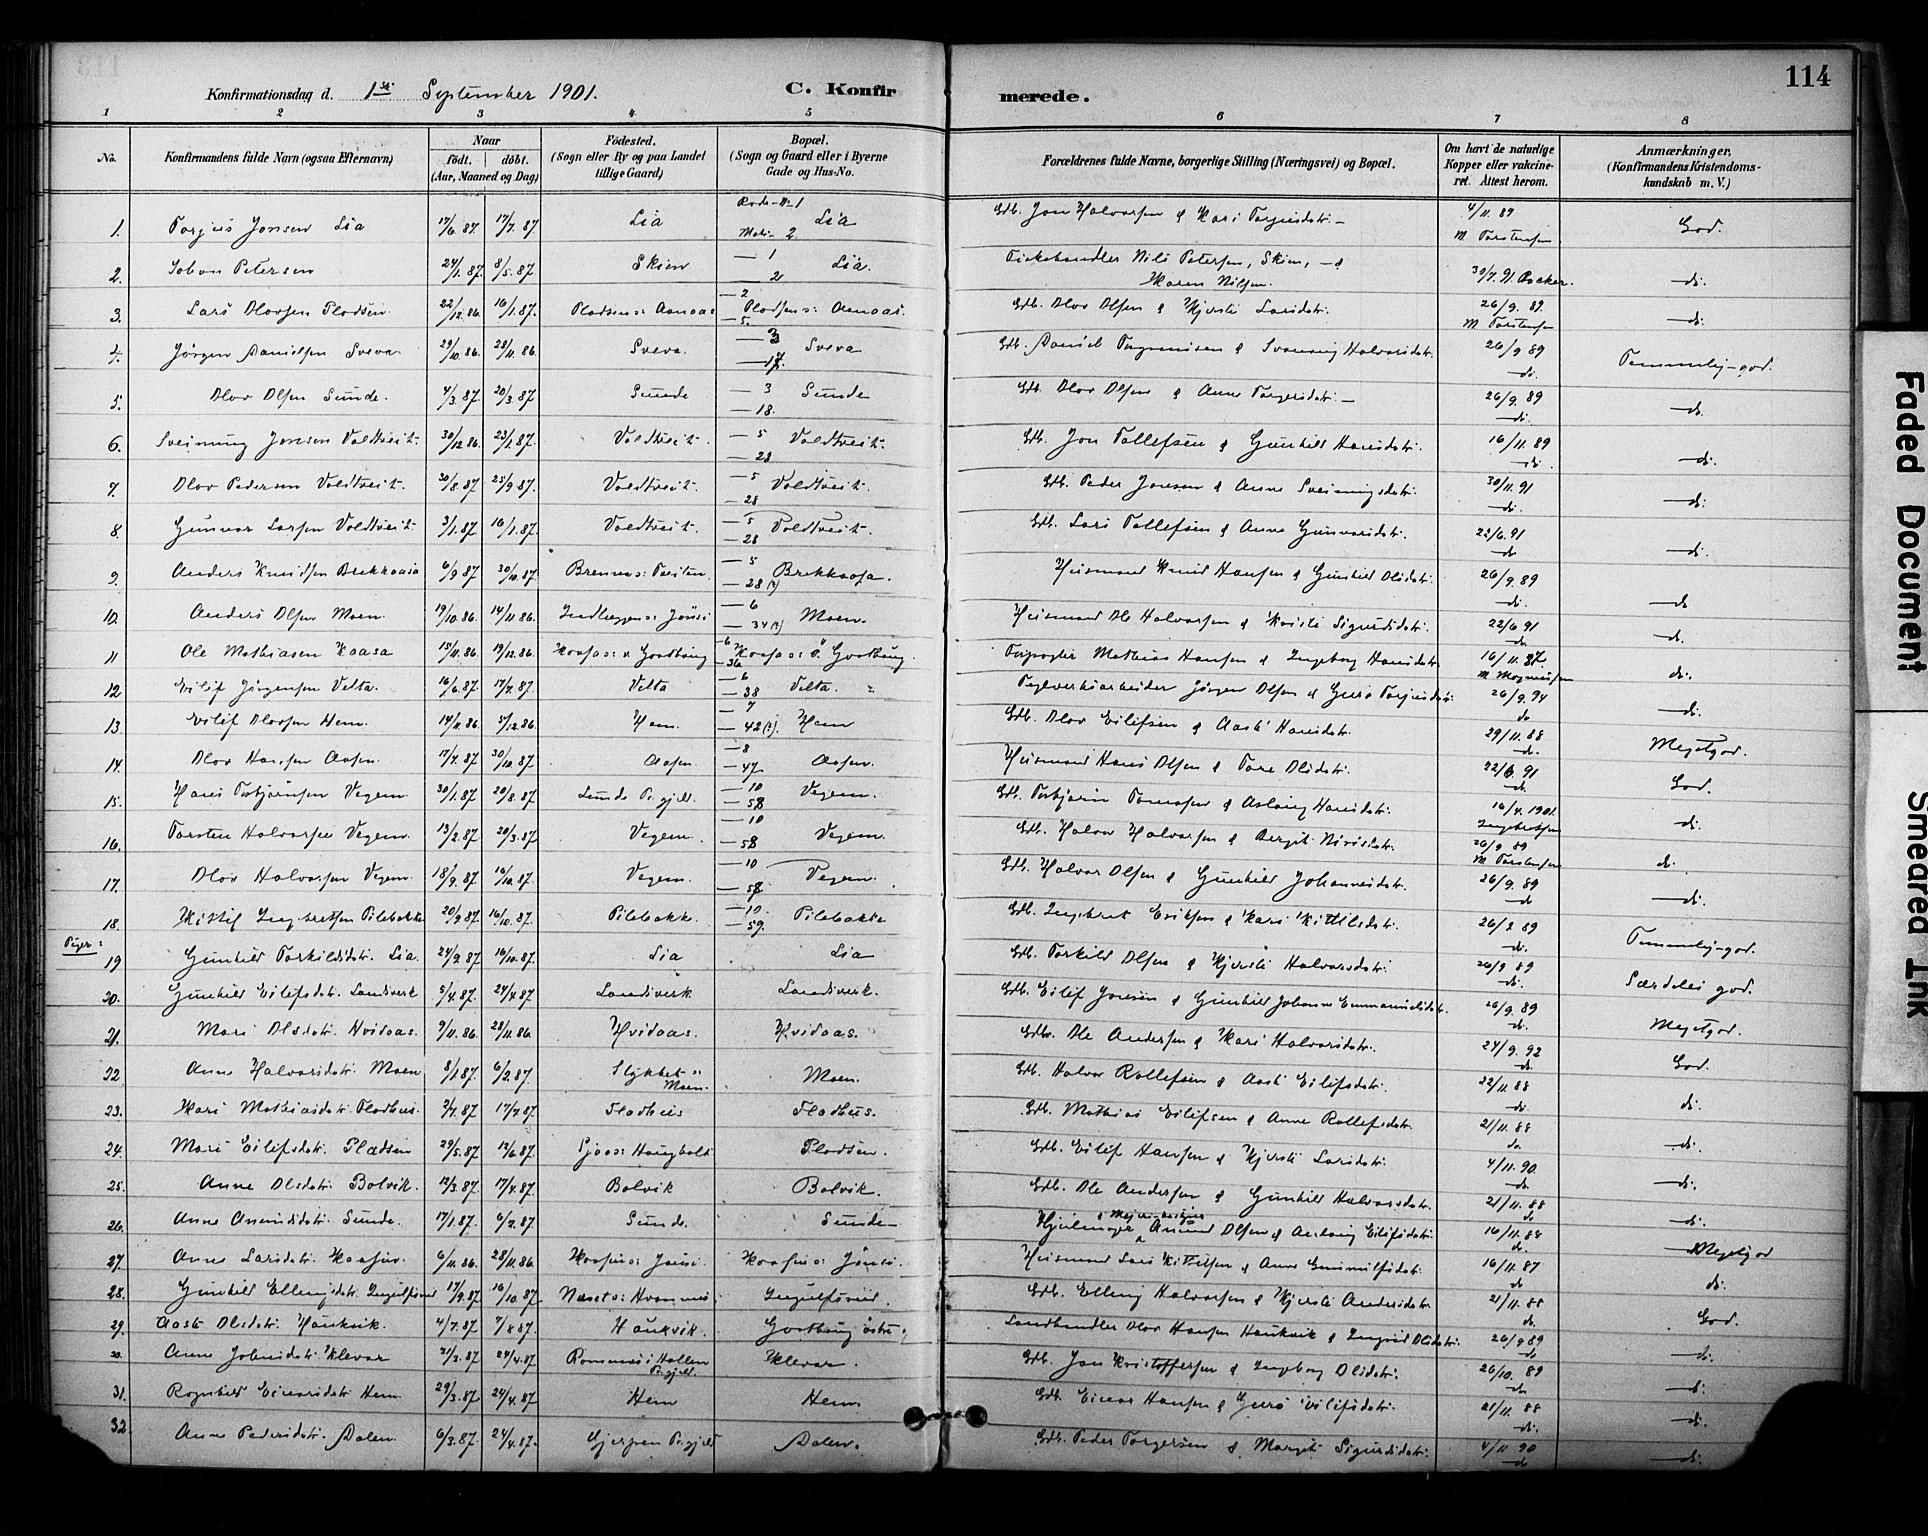 114
Konfirmationsdag d. 1ste September 1901. C. Konfirmerede.
1 2 3 4 5 6 7 8
No. Konfirmandens fulde Navn (ogsaa Efternavn) Naar født. døbt. (Aar, Maaned og Dag) Fødested. (Sogn eller By og paa Landet tillige Gaard) Bopæl. (Sogn og Gaard eller i Byerne Gade og Hus-No. Forældrenes fulde Navne, borgerlige Stilling (Næringsvei) og Bopæl. Om havt de naturlige Kopper eller vakcineret. Attest herom. Anmærkninger, (Konfirmandens Kristendomskundskab m. V.)
1. Torjus Jonsen Lia 17/6.87. 17/7.87. Lia Rode-No 1 Matr- 2 Lia Gdb. Jon Halvorsen & Kari Torjusdatr. 4/11.89 M Torstensen God.
2. Johan Petersen 24/1.87. 8/5.87. Skien 1 2 Lia. Nils Petersen, Skien, & Karen Nilsen. 30/7.91 do.
3. Lars Olavsen Pladsen 22/12.86 16/1.87. Pladsen s: Aanaas 2 5. Pladsen s: Aanaas. Gdb. Olav Olsen & Kjersti Larsdatr. 26/9.89. M Torstensen do.
4. Jørgen Danielsen Sveva. 29/10.86. 28/11.86. Sveva. 3 17. Sveva Gdb. Daniel & Halvorsdatr. 26/9 89 do. Temmelig god.
5. Olav Olsen Sunde. 4/3.87. 20/3.87 Sunde 3 18. Sunde Gdb. Olav Olsen & Anne Torgersdatr. 26/9.89 do. do.
6. Sveinung Jonsen Valdtveit. 30/12.86. 23/1.87. Valdtveit. 5 28 Valdtveit. Gdb. Jon Tollefsen & Gunhild Hansdatr. 16/11.89 do. do.
7. Olav Pedersen Valdtveit. 30/8.87 25/9.87. Valdtveit. 5 28 Valdtveit. Gdb. Peder Jonsen & Anne Sveinungsdatr. 30/11.91 do. do.
8. Gunvor Larsen Valdtveit. 3/1.87. 16/1.87. Valdtveit. 5 28 Valdtveit. Gdb. Lars Tollefsen & Anne Gunvorsdatr. 22/6.91 do do.
9. Anders Knudsen Brekkaasa 6/9 87 30/10.87. 5 28 Brekkaasa. Husmand Knud Hansen & Gunhild Olsdatr. 26/9.89 do. do
10. Anders Olsen Moen. 19/10.86. 14/11.86. 6 34 Moen. Husmand Ole Halvorsen & Sigurdsdatr. 22/6.91 do do.
11 Ole Mathiasen Kaasa 15/11.86. 19/12.86. 6 36 Mathias Hansen & Ingeborg Hansdatr. 16/11.87. M Magnussen do.
12 Eilif Jørgensen Velta. 16/6.87. 17/7.87. Velta 6 38 Velta. Teglverksarbeider Jørgen Olsen & Guro Torjusdatr. 26/9.94 do do.
13. Eilif Olavsen Hem. 14/11.86. 5/12.86. Hem. 7 42 Hem Gdb. Olav Eilifsen & Aaste Hansdatr. 29/11.88 do. Megetgod.
14. Olav Hansen Aasen. 17/7.87 30/10.87. Aasen 8 47 Aasen. Husmand Hans Olsen & Tone Olsdatr. 22/6.91 do. God.
15. Hans Torbjørnsen Vegem. 30/1.87. 20/8.87 Lunde Prgjld. 10 58 Vegem. Gdb. Torbjørn & Aslaug Hansdatr. 16/4.1901 Ingebretsen do.
16. Torsten Halvorsen Vegem. 13/2.87. 20/3.87 Vegem. 10 58 Vegem. Gdb. Halvor Halvorsen & Bergit Nirisdatr. 26/9 89 M Torstensen do.
17. Olav Halvorsen Vegem. 18/9.87. 16/10.87. Vegem. 10 58 Vegem. Gdb. Halvor Olsen & Gunhild Johannesdatr. 26/9.89 do do.
18. Kittil Ingebretsen Pilebakke 20/9 87 16/10.87. Pilebakk. 10. 59. Pilebakke Gdb. Ingebret Eriksen & Kari Kittilsdatr. 26/9 89 do. Temmelig god.
Piger:
19 Gunhild Torkildsdatr. Lia. 24/9.87. 16/10.87. Lia Lia Gdb. Torkild Olsen & Kjersti Halvorsdatr. 26/9 89 do. Særdeles god.
20. Gunhild Eilifsdatr. Landsverk 5/4.87. 24/4.87 Landsverk. Landsverk. Gdb. Eilif Jonsen & Gunhild Johanne Emmanuelsdatr. 26/9.89 do. Megetgod.
21. Mari Olsdatr. Hvidaas. 9/11.86. 28/11.86. Hvidaas. Hvidaas. Gdb. Ole Andersen & Kari Halvorsdatr. 24/9.92 do. God.
22 Anne Halvorsdatr. Moen 8/1.87 6/2.87. Stykket s: Moen. Moen. Gdb. Halvor Rollefsen & Aaste Eilifsdatr. 22/11.88 do. do.
23. Kari Mathiasdatr. Fladhus. 2/7.87 17/7.87 Fladhus Fladhus. Gdb. Mathias Eilifsen & Anne Rollefsdatr. 21/11.88 do do.
24. Mari Eilifsdatr. Pladsen 29/5.87. 12/6.87. Pladsen. Gdb. Eilif Hansen & Kjersti Larsdatr. 4/11.90. do do.
25. Anne Olsdatr. Bolvik. 12/3.87. 17/4.87. Bolvik Bolvik. Gdb. Ole Andersen & Gunhild Halvorsdatr. 21/11.88 do do.
26. Anne Anundsdatr. Sunde. 17/1.87. 6/2.87. Sunde. Sunde Hjulmager Anund Olsen & Aaslaug Eilifsdatr. 16/11.88 do. Megetgod
27. Anne Larsdatr. 6/11.86. 28/11.86. Husmand Lars Kittilsen & Anne 16/11.87 do do.
28. Gunhild Ellingsdatr. 17/9.87. 16/10.87. Gdb. Elling Halvorsen & Kjersti Andersdatr. 21/11.88 do. God.
29. Aaste Olsdatr. Haukvik. 4/7.87. 7/8 87. Haukvik. Landhandler Olav Hansen Haukvik & Ingrid Olsdatr. 26/9 89 do do.
30. Anne Jonsdatr. Klevar 2/3.87. 24/4.87. Romnes i Hollen Prgjeld. Klevar. Gdb. Jon Kristoffersen & Ingeborg Olsdatr. 26/10.89 do do.
31. Ragnhild Einarsdatr. Hem. 29/3.87. 24/4.87. Hem Hem. Gdb. Einar Hansen & Guro Eilifsdatr. 21/11.88 do. do.
32. Anne Pedersdatr. Dalen. 6/3.87. 24/4.87. Gjerpen Prgjeld Dalen. Gdb. Peder Torgersen & Margit Sigurdsdatr. 4/11 90 do do.
Faded Document
Smeared Ink